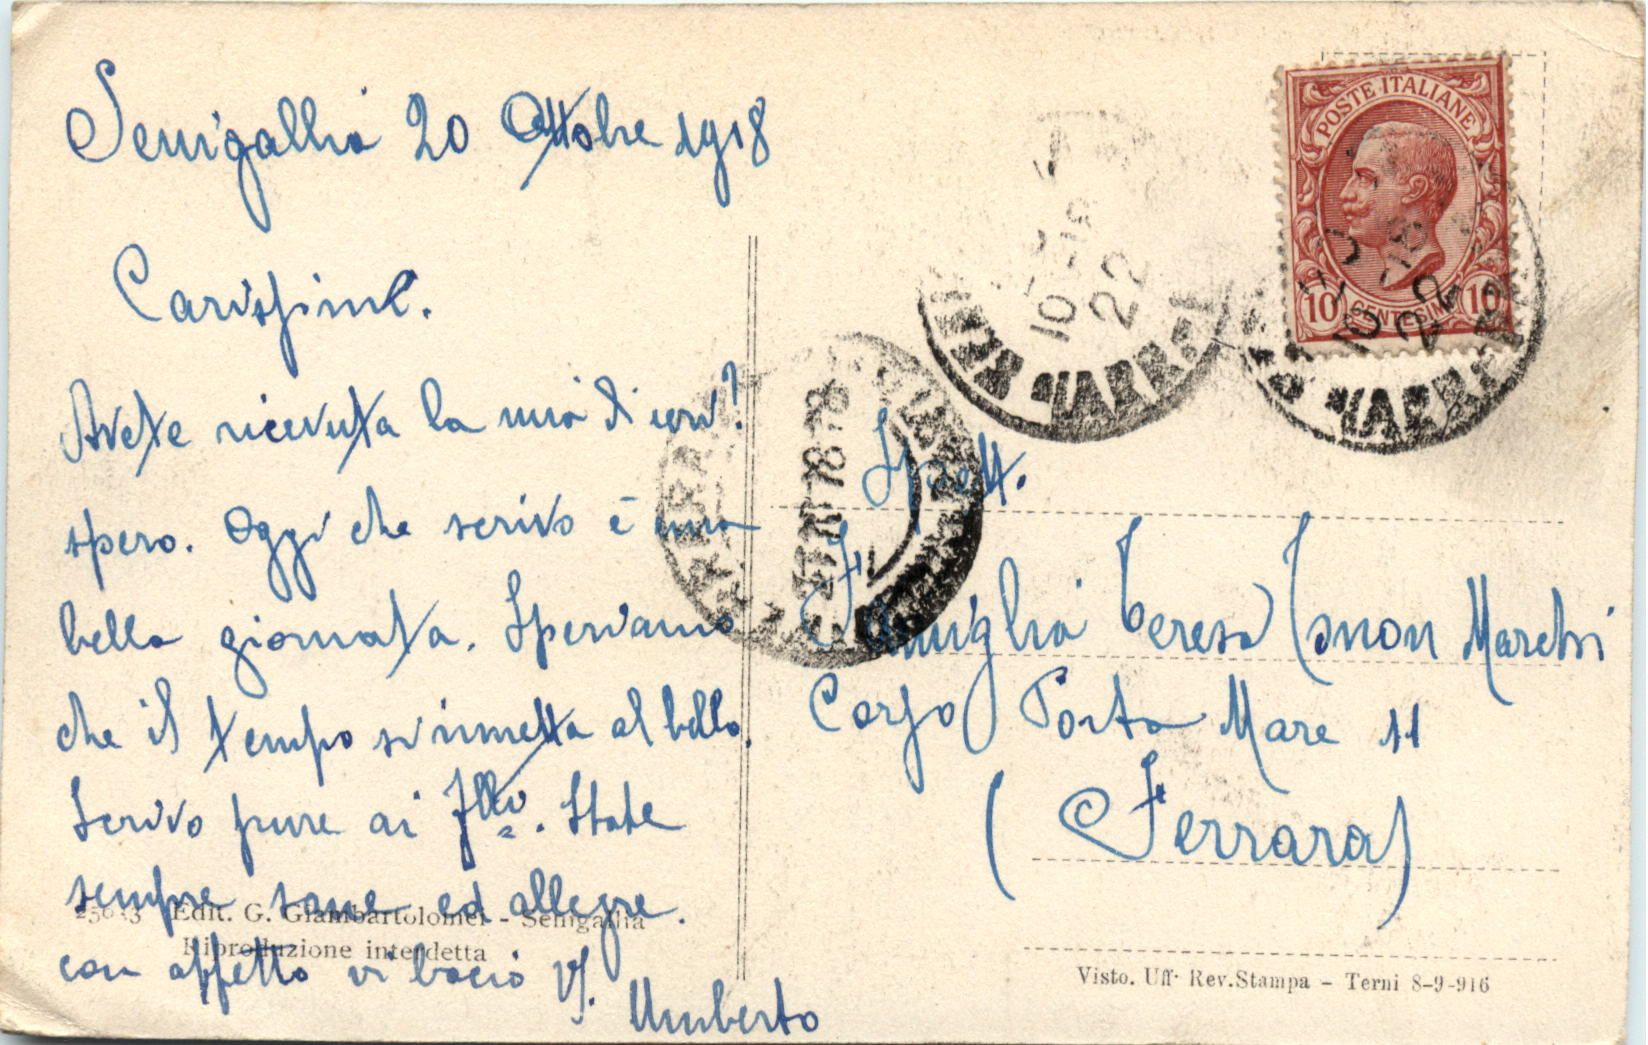 Senigallia 20 Ottobre 1918
Carissime.
Avete ricevuta la mia di ieri?
spero. Oggi che scrivo è una
bella giornata. Speriamo
che il tempo si rimetta al bello.
Scrivo pure ai F.lli. State
sempre sane ed allegre.
con affetto vi bacio Vs.
Umberto
Edit. G. Giambartolomei - Senigallia
Riproduzione interdetta
POSTE ITALIANE
10 CENTESIMI 10
10-18
22
Spett.
Famiglia Teresa Marchi
Corso Porta Mare 11
(Ferrara)
Visto. Uff. Rev. Stampa - Terni 8-9-916